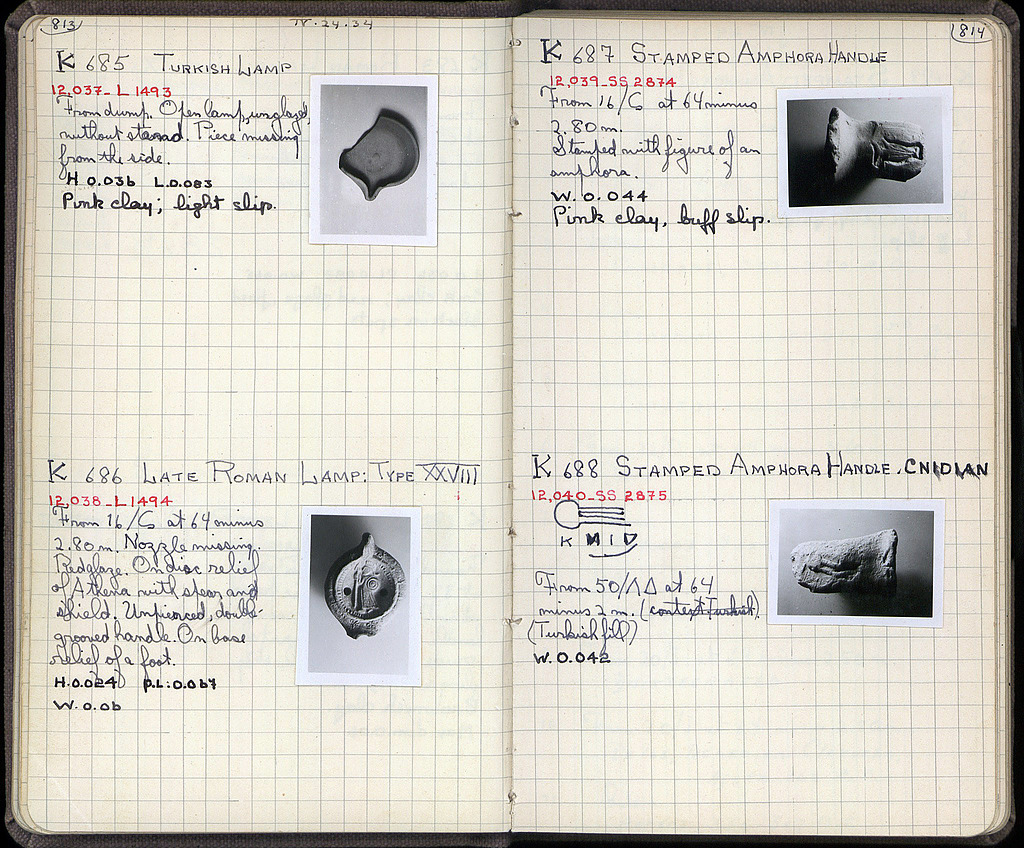 813
IV.24.34
K 685 TURKISH LAMP
12,037-L 1493
From dump. Open lamp, unglazed,
without stand. Piece missing
from the side.
H 0.036 L.0.083
Pink clay; light slip.
K 686 LATE ROMAN LAMP: TYPE XXVIII
12,038-L 1494
From 16/S at 64 minus
2.80 m. Nozzle missing.
Red glaze. On disc relief
of Athena with spear and
shield. Unpierced, double-
grooved handle. On base
relief of a foot.
H.0.024 P.L:0.067
W.0.06
814
K 687 STAMPED AMPHORA HANDLE
12,039-SS 2874
From 16/S at 64 minus
2.80 m.
Stamped with figure of an
amphora.
W.0.044
Pink clay, buff slip.
K 688 STAMPED AMPHORA HANDLE. CNIDIAN
12,040-SS 2875
ΚΝΙΔ
From 50/ΛΔ at 64
minus 2 m. (context Turkish)
(Turkish fill)
W.0.042